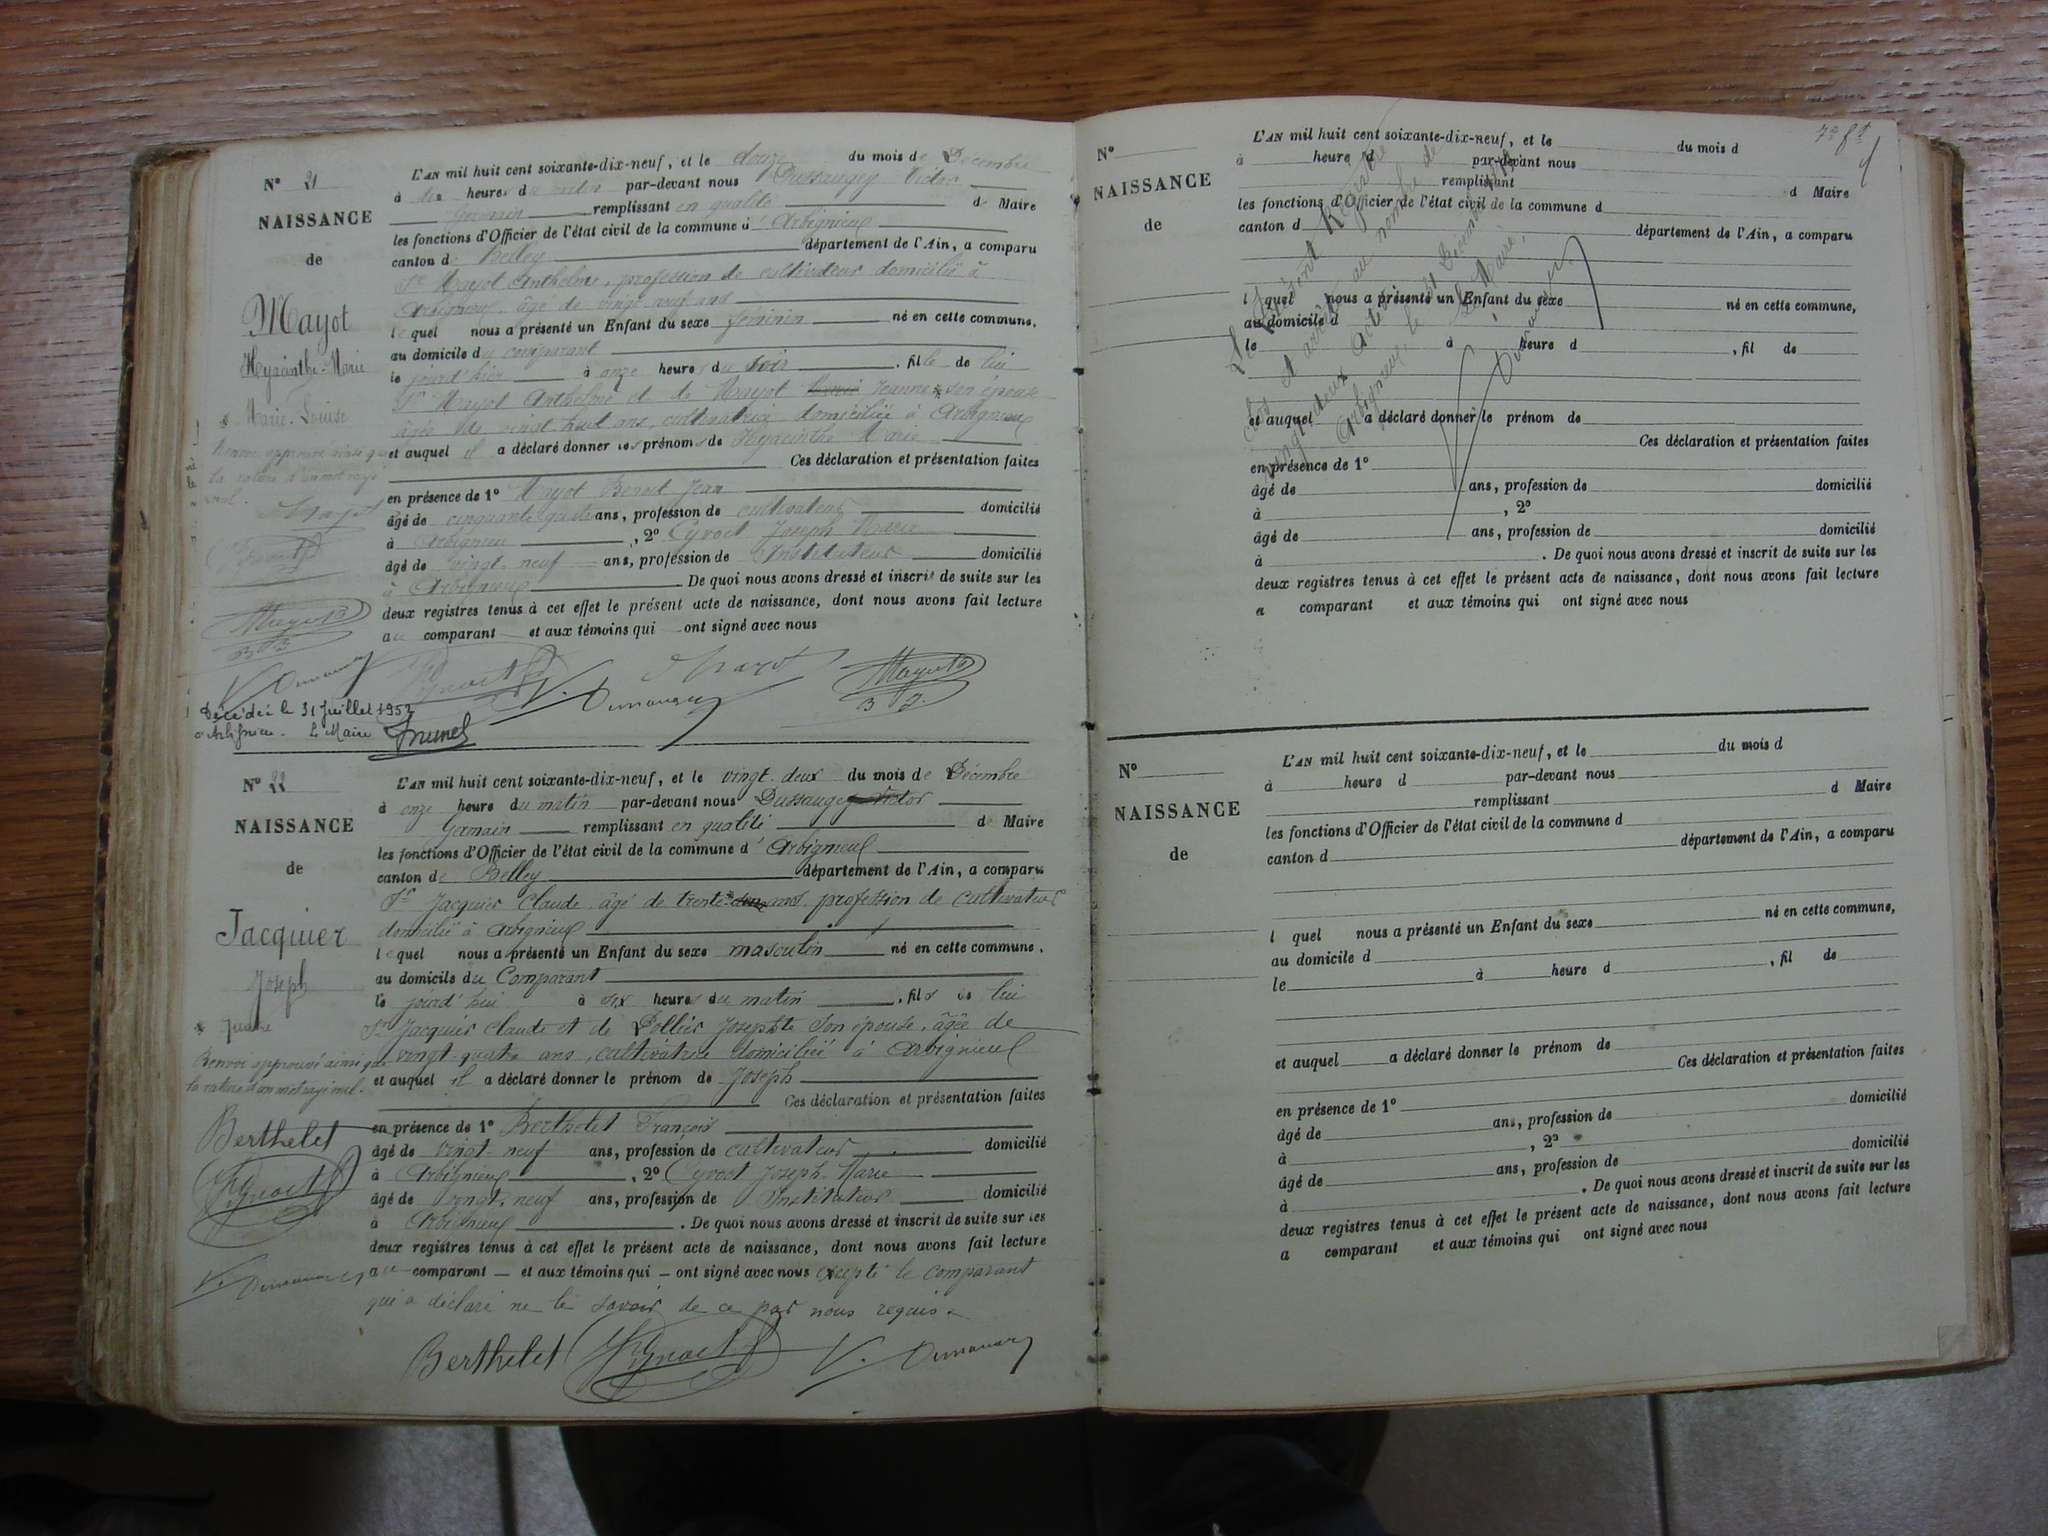 N° 21
NAISSANCE
de
Mayot
Hyacinthe-Marie
x Marie-Louise
Renvoi approuvé ainsi que
la rature d'un mot rayé
nul.
Mayot
L'AN mil huit cent soixante-dix-neuf, et le douze du mois de Décembre
à dix heures du matin par-devant nous Dussaugey Victor
Germain remplissant en qualité de Maire
les fonctions d'Officier de l'état civil de la commune d'Arbignieu
canton de Belley département de l'Ain, a comparu
Sr Mayot Anthelme, profession de cultivateur domicilié à
Arbignieu, âgé de vingt-neuf ans
lequel nous a présenté un Enfant du sexe féminin né en cette commune,
au domicile du comparant
le jourd'hier à onze heures du soir, fille de lui
Sr Mayot Anthelme et de Mayot Jeanne x son épouse
âgée de vingt huit ans, cultivatrice domiciliée à Arbignieu
et auquel il a déclaré donner les prénoms de Hyacinthe Marie
Ces déclaration et présentation faites
en présence de 1° Mayot Benoit Jean
âgé de cinquante quatre ans, profession de cultivateur domicilié
à Arbignieu, 2° Cyvoct Joseph Marie
âgé de vingt-neuf ans, profession de Instituteur domicilié
à Arbignieu. De quoi nous avons dressé et inscrit de suite sur les
deux registres tenus à cet effet le présent acte de naissance, dont nous avons fait lecture
au comparant et aux témoins qui ont signé avec nous
Mayot
Décédée le 31 Juillet 1952
à Arbignieu. Le Maire Brunel
N° 22
NAISSANCE
de
Jacquier
Joseph
x quatre
Renvoi approuvé ainsi que
la rature d'un mot rayé nul.
Berthelet
L'AN mil huit cent soixante-dix-neuf, et le vingt-deux du mois de Décembre
à onze heure du matin par-devant nous Dussaugey Victor
Germain remplissant en qualité de Maire
les fonctions d'Officier de l'état civil de la commune d'Arbignieu
canton de Belley département de l'Ain, a comparu
Sr Jacquier Claude âgé de trente x ans, profession de cultivateur
domicilié à Arbignieu
lequel nous a présenté un Enfant du sexe masculin né en cette commune,
au domicile du Comparant
le jourd'hui à six heures du matin, fils de lui
Sr Jacquier Claude et de Pollier Josephte son épouse, âgée de
vingt-quatre ans, cultivatrice domiciliée à Arbignieu
et auquel il a déclaré donner le prénom de Joseph
Ces déclaration et présentation faites
en présence de 1° Berthelet François
âgé de vingt-neuf ans, profession de cultivateur domicilié
à Arbignieu, 2° Cyvoct Joseph-Marie
âgé de vingt-neuf ans, profession de Instituteur domicilié
à Arbignieu. De quoi nous avons dressé et inscrit de suite sur les
deux registres tenus à cet effet le présent acte de naissance, dont nous avons fait lecture
au comparant et aux témoins qui ont signé avec nous excepté le comparant
qui a déclaré ne le savoir de ce par nous requis.
Berthelet
N°
NAISSANCE
de
L'AN mil huit cent soixante-dix-neuf, et le du mois d
à heure d par-devant nous
remplissant d Maire
les fonctions d'Officier de l'état civil de la commune d
canton d département de l'Ain, a comparu
l quel nous a présenté un Enfant du sexe né en cette commune,
au domicile d
le à heure d, fil de
et auquel a déclaré donner le prénom de
Ces déclaration et présentation faites
en présence de 1°
âgé de ans, profession de domicilié
à, 2°
âgé de ans, profession de domicilié
à. De quoi nous avons dressé et inscrit de suite sur les
deux registres tenus à cet effet le présent acte de naissance, dont nous avons fait lecture
a comparant et aux témoins qui ont signé avec nous
Le présent Registre
clos et arrêté au nombre de
vingt-deux actes
Arbignieu, le 31 Décembre
Le Maire,
N°
NAISSANCE
de
L'AN mil huit cent soixante-dix-neuf, et le du mois d
à heure d par-devant nous
remplissant d Maire
les fonctions d'Officier de l'état civil de la commune d
canton d département de l'Ain, a comparu
l quel nous a présenté un Enfant du sexe né en cette commune,
au domicile d
le à heure d, fil de
et auquel a déclaré donner le prénom de
Ces déclaration et présentation faites
en présence de 1°
âgé de ans, profession de domicilié
à, 2°
âgé de ans, profession de domicilié
à. De quoi nous avons dressé et inscrit de suite sur les
deux registres tenus à cet effet le présent acte de naissance, dont nous avons fait lecture
a comparant et aux témoins qui ont signé avec nous